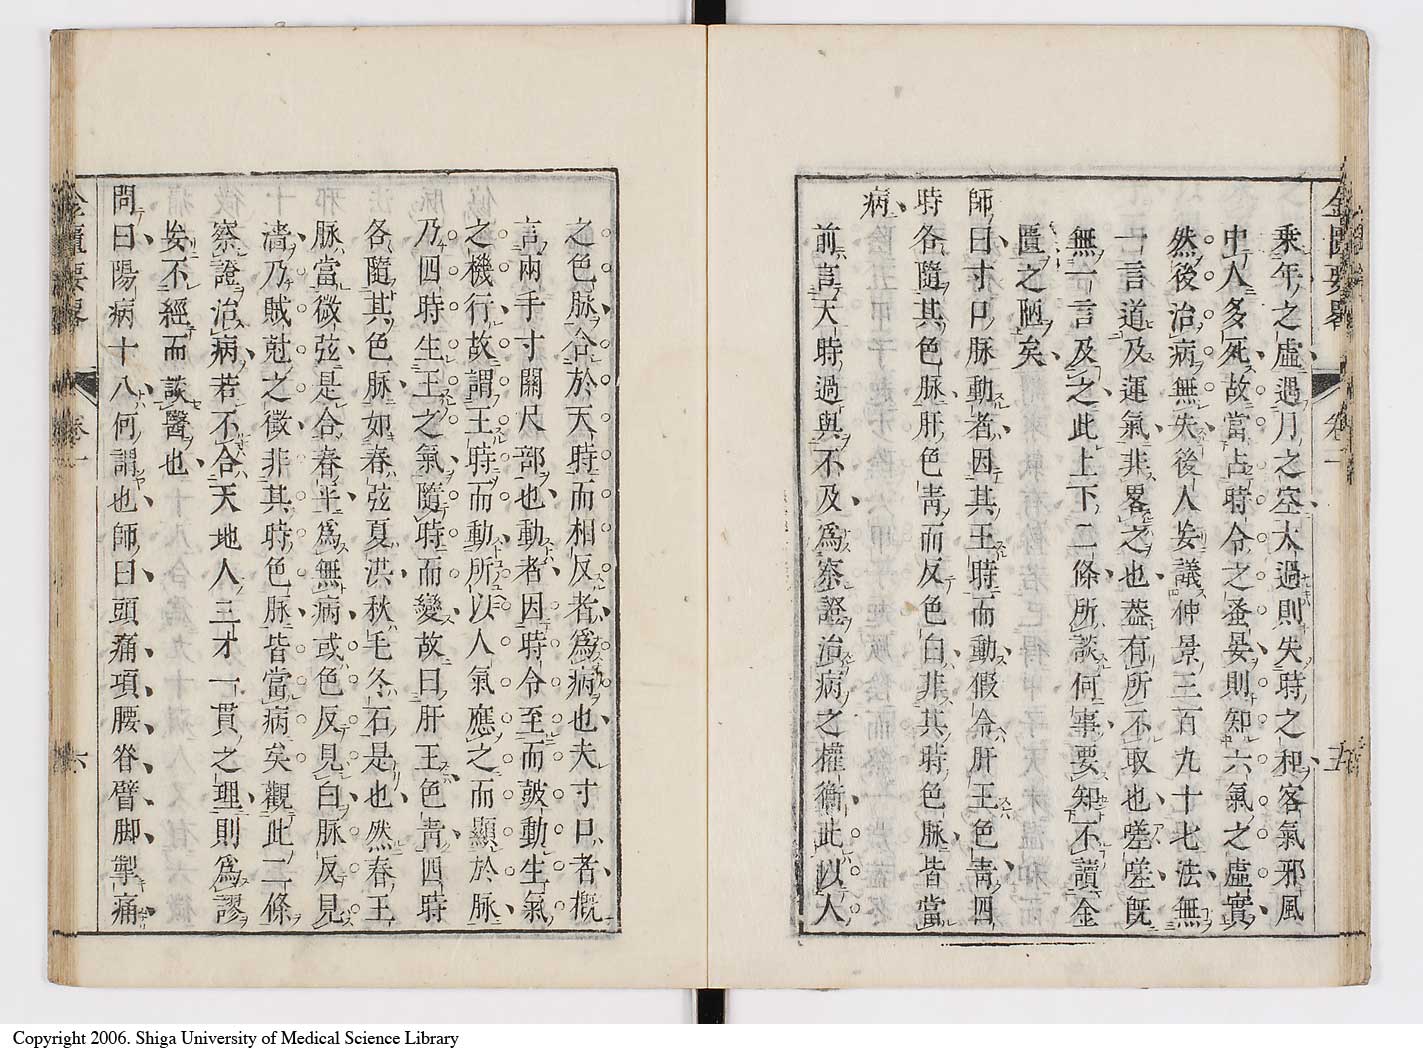 金匱要畧 卷一 五
乘年之虛遇月之空大過則失時之和客氣邪風
中人多死故當占時令之蚤晏則知六氣之虛實
然後治病無失後人妄議仲景三百九十七法無
一言道及運氣非畧之也蓋有所不取也嗟嗟既
無一言及之此上下二條所談何事要知不讀金
匱之陋矣
師曰寸口脉動者因其王時而動假令肝王色靑四
時各隨其色脉肝色靑而反色白非其時色脉皆當
病
前言天時過與不及爲察證治病之權衡此以人
之色脉合於天時而相反者爲病也夫寸口者概
言兩手寸關尺部也動者因時令至而鼓動生氣
之機行故謂王時而動所以人氣應之而顯於脉
乃四時生王之氣隨時而變故曰肝王色靑四時
各隨其色脉如春弦夏洪秋毛冬石是也然春王
脉當微弦是合春平爲無病或色反見白脉反見
濇乃賊尅之徵非其時色脉皆當病矣觀此二條
察證治病若不合天地人三才一貫之理則爲謬
妄不經而談醫也
問曰陽病十八何謂也師曰頭痛項腰脊臂脚掣痛
金匱要畧 卷一 六
Copyright 2006. Shiga University of Medical Science Library